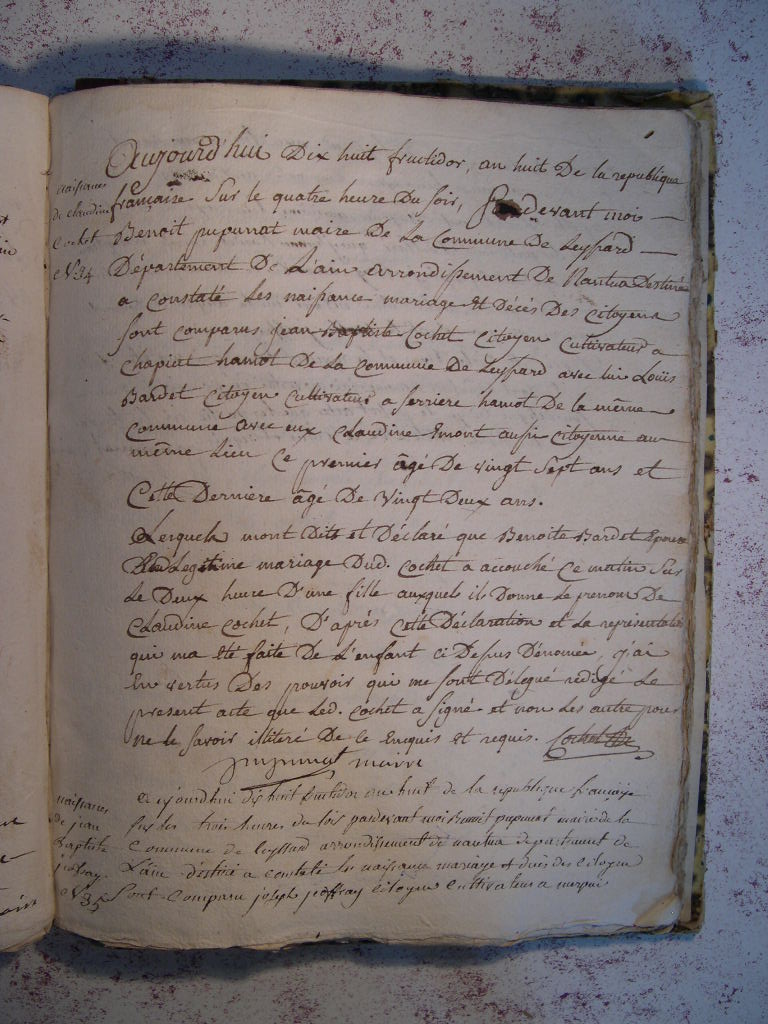 Aujourd'hui Dix huit fructidor, an huit De la republique
naissance
de claudine
Cochet
N.34
française Sur le quatre heure Du soir, Pardevant moi
Benoit pupunat maire De La Commune De Leyssard
Département De L'ain arrondissement De Nantua Destiné
a constaté Les naissance mariage Et Décés Des Citoyens
sont comparus jean Baptiste Cochet Citoyen Cultivateur a
chapiat hamot De La Commune De Leyssard avec lui Louis
Bardet Citoyen Cultivateur a serriere hamot De la même
Commune avec eux Claudine Emont aussi Citoyenne au
même Lieu Ce premier âgé De vingt Sept ans et
Cette Derniere âgé De Vingt Deux ans.
Lesquels mont Dits et Déclaré que Benoite Bardet Epouse
Legitime mariage Dud. Cochet a accouché Ce matin Sur
Le Deux heure D'une fille auxquels ils Donne Le prenom De
Claudine Cochet, D'aprés Cette Déclaration et La representation
qui ma été faite De L'enfant ci Depus Dénomée, j'ai
En vertus Des pouvoir qui me sont Délegué redigé Le
present acte que Led. Cochet a signé et non Les autre pour
ne le savoir illiteré De ce Enquis et requis. Cochet
pupunat maire
naissance
de jean
Baptiste
joffray
N.35
aujourdhui dix huit fructidor an huit de la republique française
sur les trois heures du soir pardevant moi Benoit pupunat maire de la
Commune de leyssard arrondissement de nantua departement de
L'ain destiné a constaté les naissance mariage et décès des citoyens
Sont Comparu joseph joffray Citoyen Cultivateur a